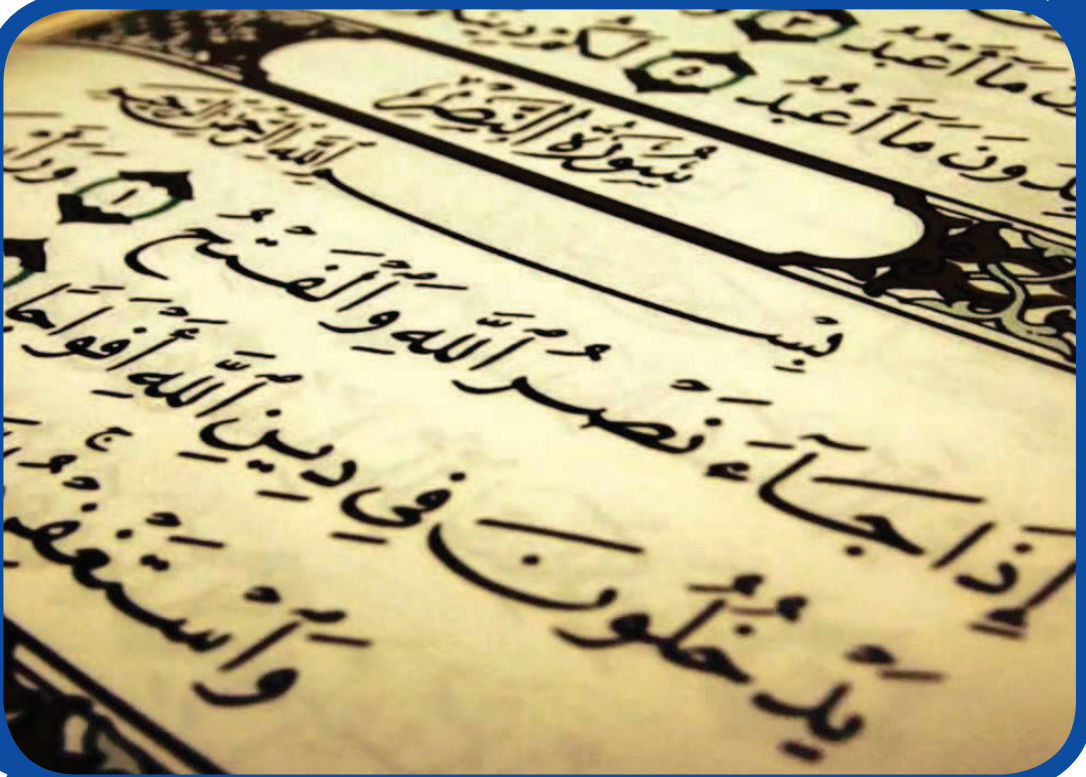 مَآ أَعْبُدُ ٣
مَآ أَعْبُدُ ٥ لَكُمْ
سُورَةُ النَّصْرِ
بِسْمِ ٱللَّهِ ٱلرَّحْمَٰنِ ٱلرَّحِيمِ
إِذَا جَآءَ نَصْرُ ٱللَّهِ وَٱلْفَتْحُ ١
يَدْخُلُونَ فِي دِينِ ٱللَّهِ أَفْوَاجًا
وَٱسْتَغْفِرْ